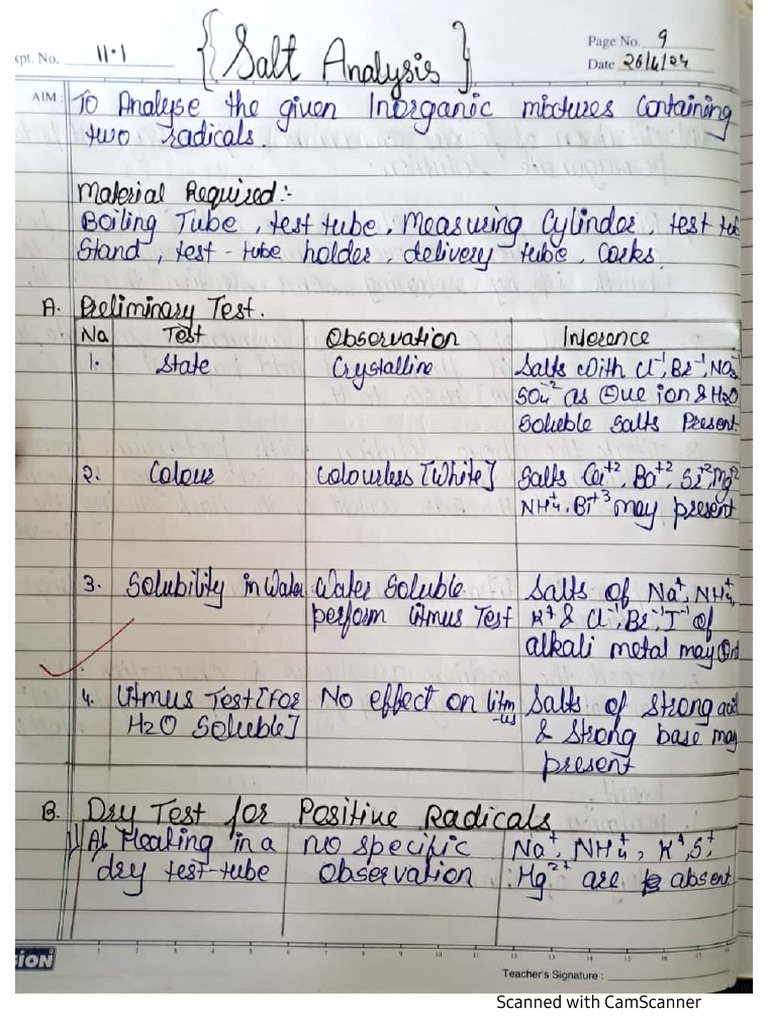 xpt. No. 11.1 {Salt Analysis} Page No. 9
Date 26/4/24
AIM: To Analyse the given Inorganic mixtures Containing
two radicals.
Material Required:-
Boiling Tube, test tube, Measuring Cylinder, test tube
Stand, test-tube holder, delivery tube, Corks.
A. Preliminary Test.
No Test Observation Inference
1. State Crystalline Salts with Cl⁻¹, Br⁻¹, NO₃⁻¹
SO₄⁻² as ⊖ve ion & H₂O
Soluble Salts Present
2. Colour Colourless [White] Salts Ca⁺², Ba⁺², Sr⁺² Mg⁺²
NH₄⁺, Bi⁺³ may present
3. Solubility in Water Water Soluble Salts of Na⁺, NH₄⁺,
perform litmus Test K⁺ & Cl⁻¹, Br⁻¹, I⁻¹ of
alkali metal may
4. Litmus Test [For No effect on litmus Salts of Strong acid
H₂O Soluble] & Strong base may
present
B. Dry Test for Positive Radicals
1) A) Heating in a no specific Na⁺, NH₄⁺, K⁺,
dry test-tube Observation Hg²⁺ are absent
SION
1 2 3 4 5 6 7 8 9 10 11 12 13 14 15 16 17
Teacher's Signature :
Scanned with CamScanner